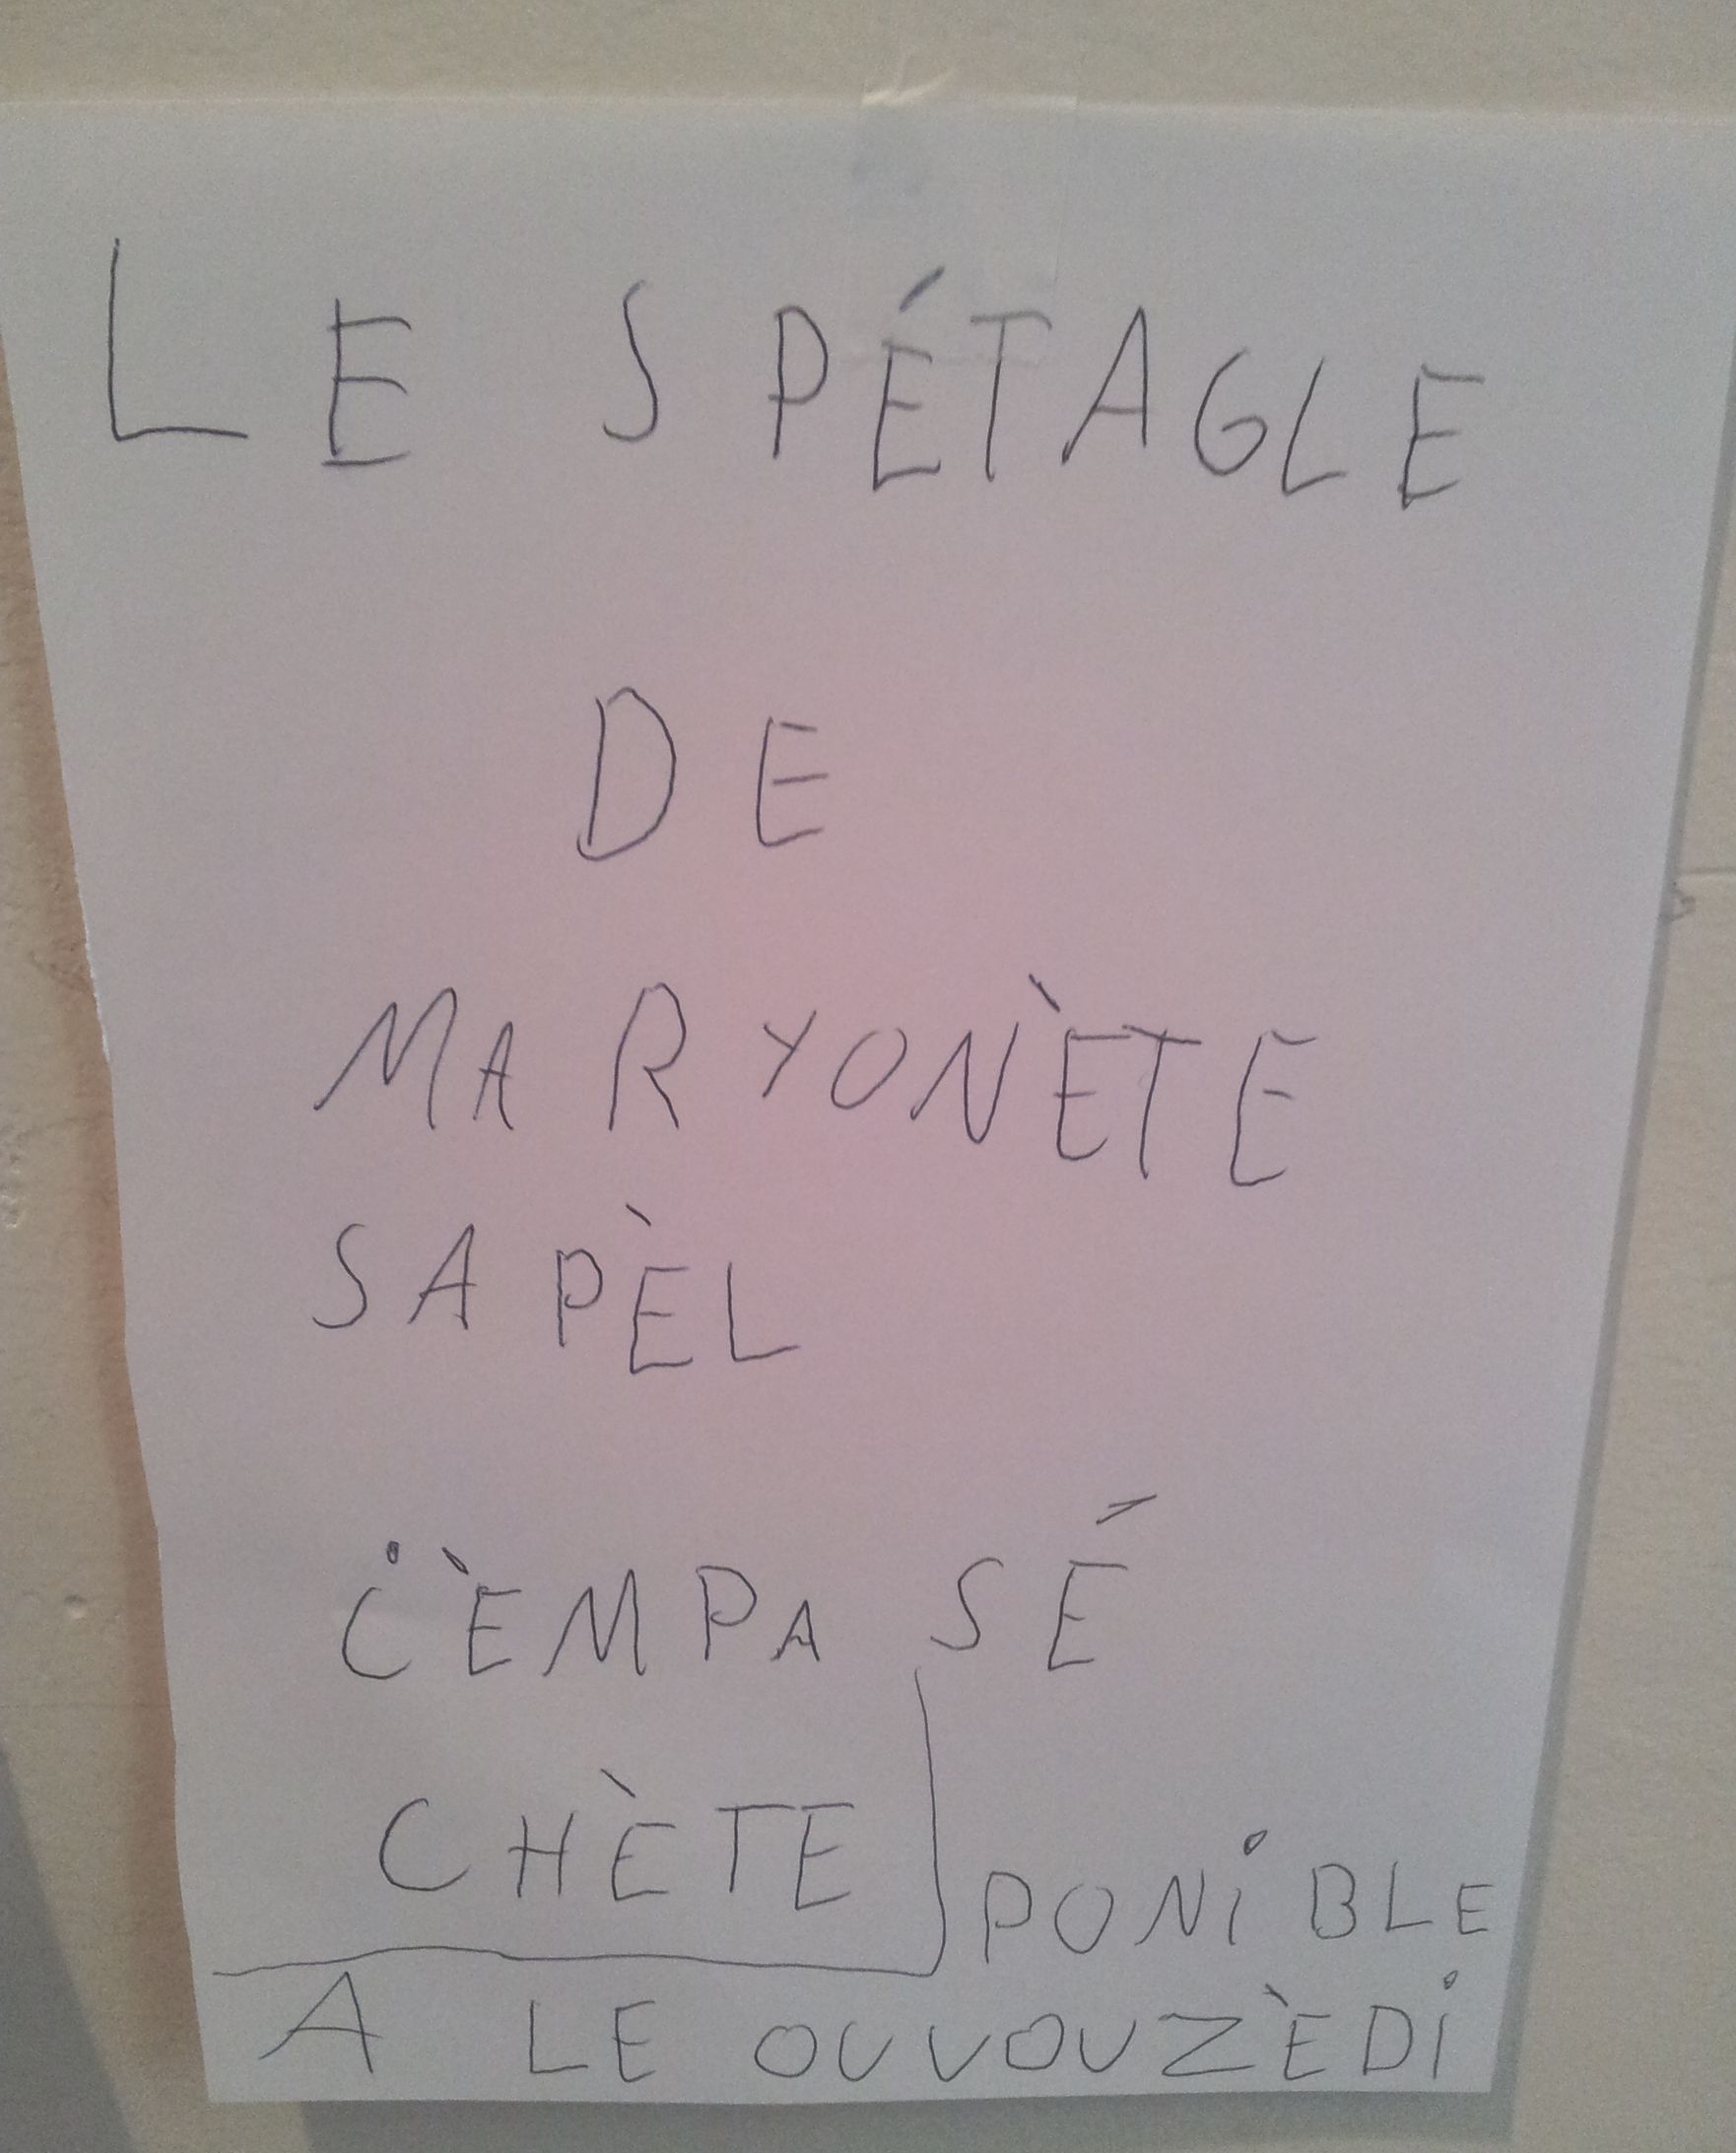 LE SPÉTAGLE
DE
MARYONÈTE
SAPÈL
CÈMPASÉ
CHÈTE
PONIBLE
A LE OUVOUZÈDI